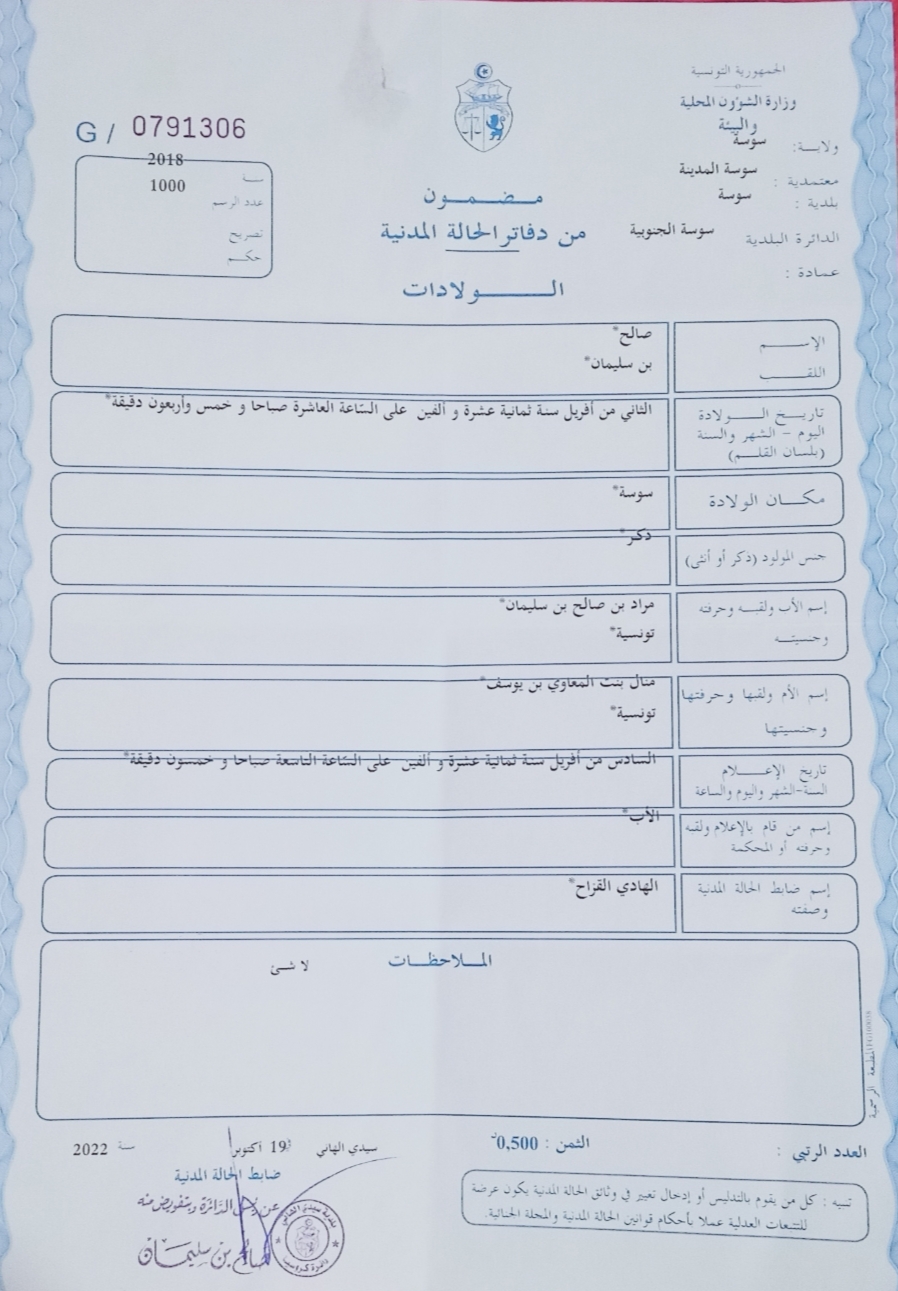 الجمهورية التونسية
وزارة الشؤون المحلية
والبيئة
ولاية: سوسة
معتمدية : سوسة المدينة
بلدية : سوسة
الدائرة البلدية سوسة الجنوبية
عمادة :
G / 0791306
سنة 2018
عدد الرسم 1000
تصريح
حكم
مضمون
من دفاتر الحالة المدنية
الولادات
الإسم صالح*
اللقب بن سليمان*
تاريخ الولادة
اليوم - الشهر والسنة
(بلسان القلم)
الثاني من أفريل سنة ثمانية عشرة و ألفين على السّاعة العاشرة صباحا و خمس وأربعون دقيقة*
مكان الولادة سوسة*
جنس المولود (ذكر أو أنثى) ذكر*
إسم الأب ولقبه وحرفته
وجنسيته
مراد بن صالح بن سليمان*
تونسية*
إسم الأم ولقبها وحرفتها
وجنسيتها
منال بنت المعاوي بن يوسف*
تونسية*
تاريخ الإعلام
السنة-الشهر واليوم والساعة
السادس من أفريل سنة ثمانية عشرة و ألفين على السّاعة التاسعة صباحا و خمسون دقيقة*
إسم من قام بالإعلام ولقبه
وحرفته أو المحكمة
الأب*
إسم ضابط الحالة المدنية
وصفته
الهادي القزاح*
الملاحظات
لا شئ
المطبعة الرسمية
العدد الرتبي :
الثمن : 0,500د
سيدي الهاني 19 أكتوبر سنة 2022
ضابط الحالة المدنية
عن رئيس الدائرة وبتفويض منه
صالح بن سليمان
بلدية سيدي الهاني
تنبيه : كل من يقوم بالتدليس أو إدخال تغيير في وثائق الحالة المدنية يكون عرضة
للتتبعات العدلية عملا بأحكام قوانين الحالة المدنية والمجلة الجنائية.